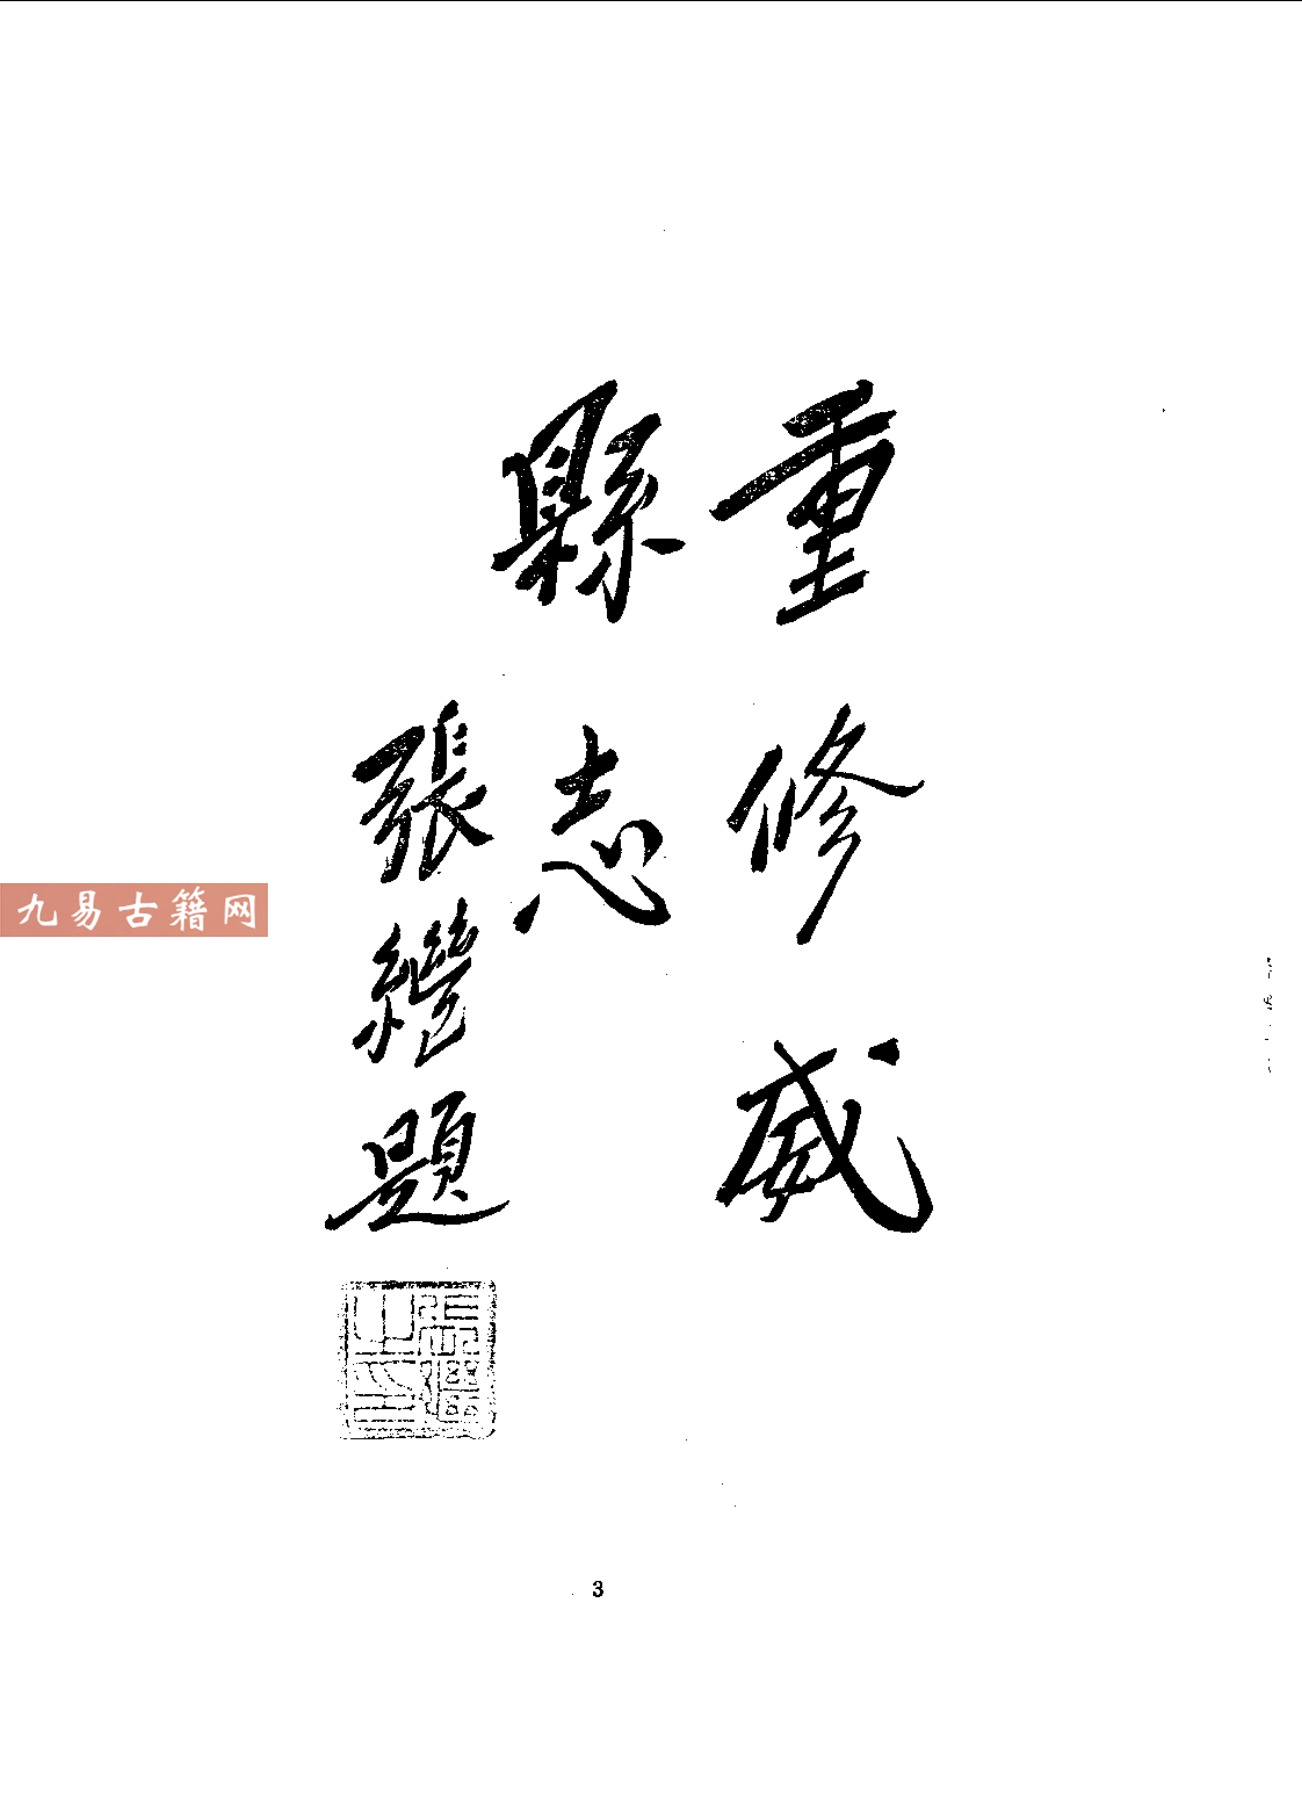 重修威
縣志
張繼題
張繼之印
九易古籍网
3